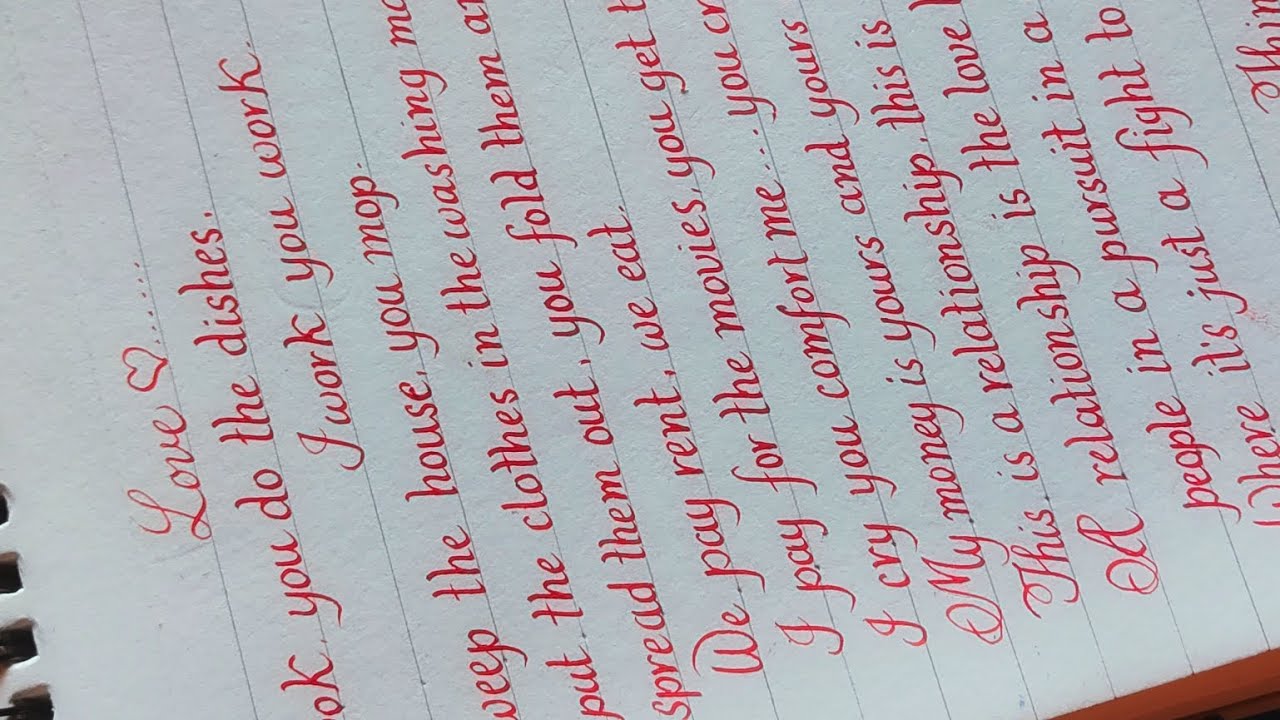 Love ♡......
ok, you do the dishes.
I work you work.
weep the house, you mop.
put the clothes in the washing ma
spread them out, you fold them an
We pay rent, we eat.
I pay for the movies, you get t
I cry you comfort me...you cr
My money is yours and yours
This is a relationship, this is
A relationship is the love
people in a pursuit in a
Where it's just a fight to
Thin